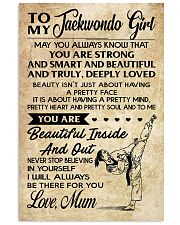 TO MY Taekwondo Girl
MAY YOU ALWAYS KNOW THAT
YOU ARE STRONG
AND SMART AND BEAUTIFUL
AND TRULY, DEEPLY LOVED
BEAUTY ISN'T JUST ABOUT HAVING
A PRETTY FACE
IT IS ABOUT HAVING A PRETTY MIND,
PRETTY HEART AND PRETTY SOUL AND TO ME
YOU ARE
Beautiful Inside
And Out
NEVER STOP BELIEVING
IN YOURSELF
I WILL ALWAYS
BE THERE FOR YOU
Love, Mum